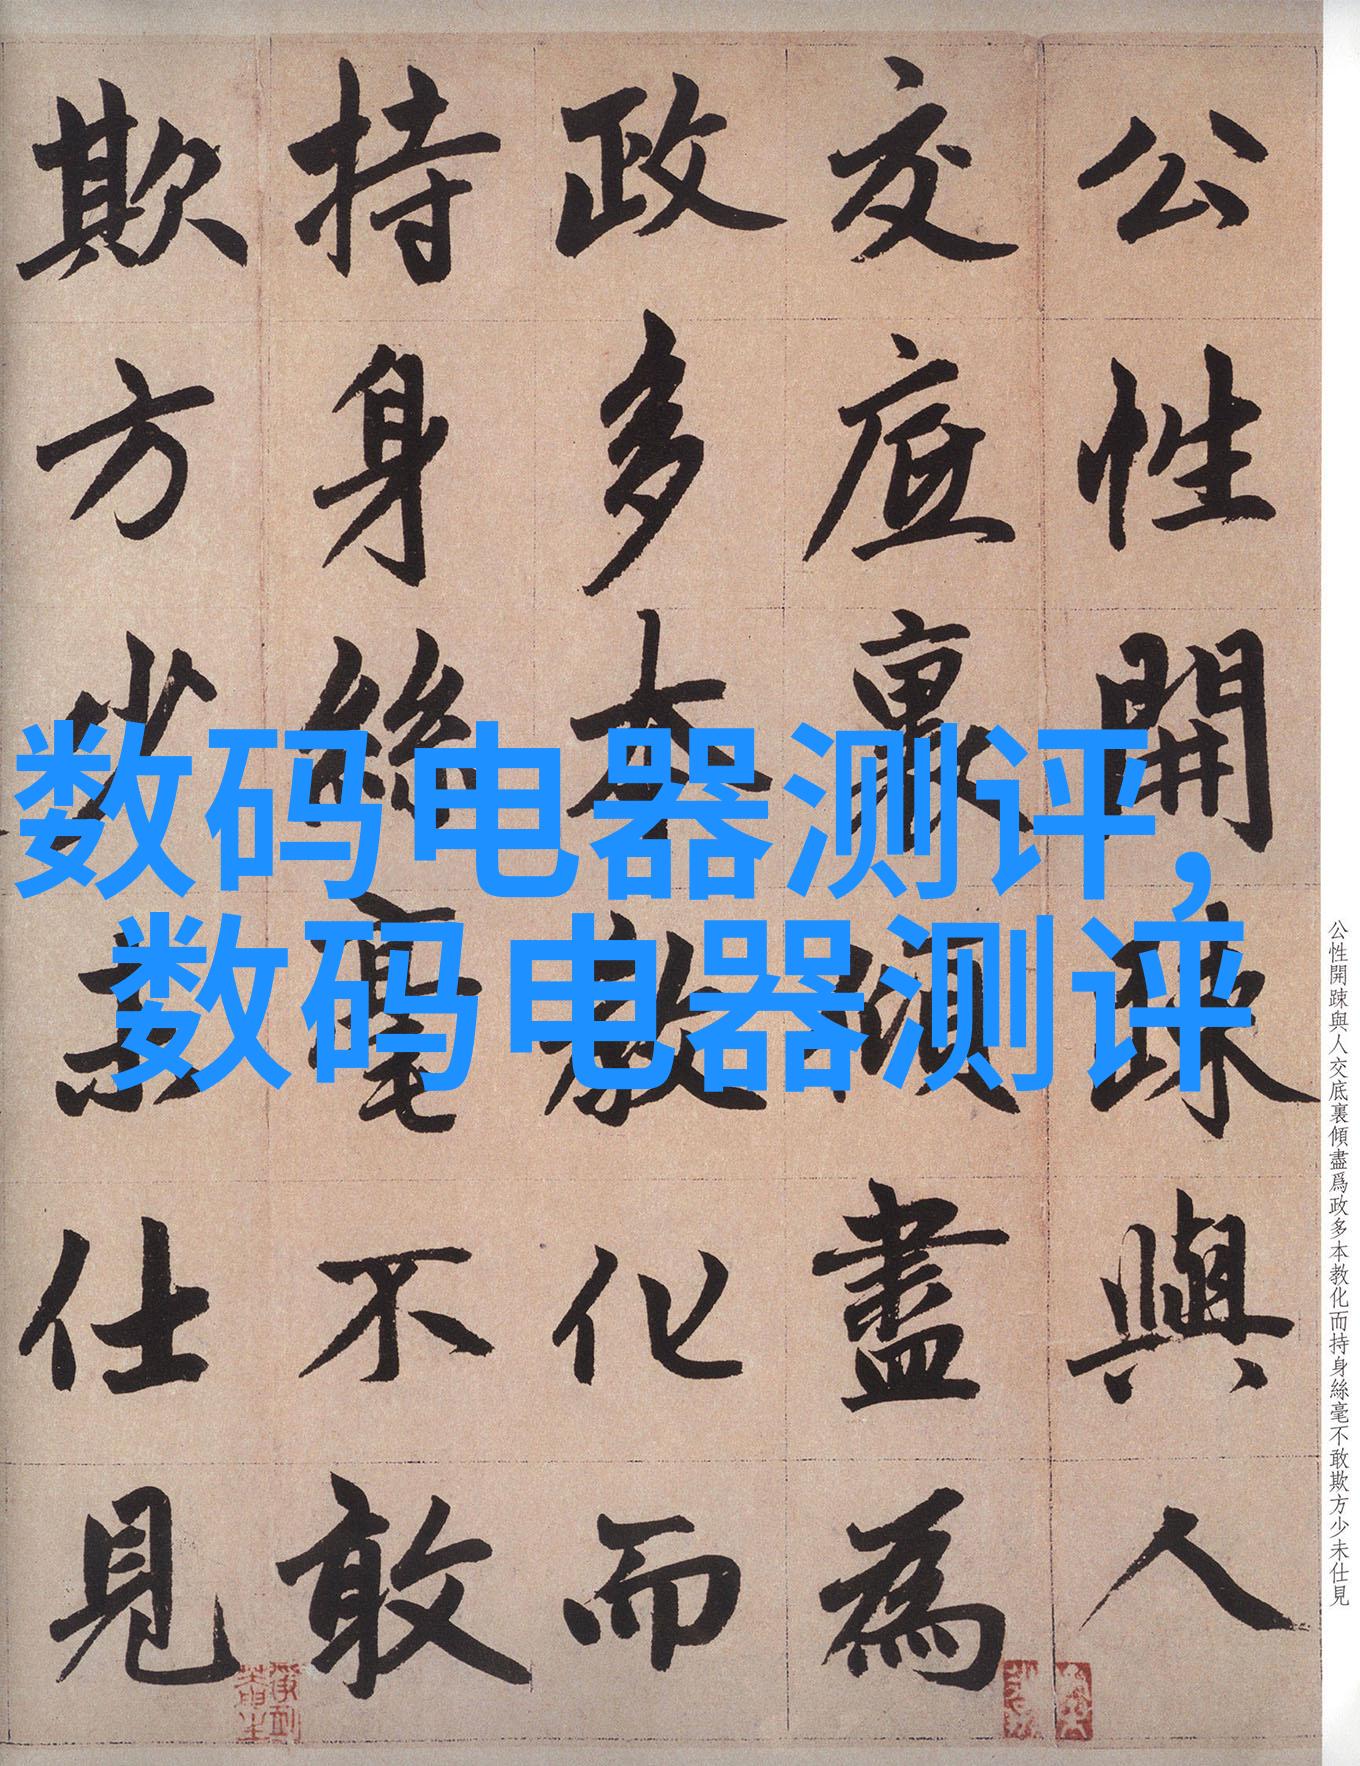 公性開踈與人
交底裏傾盡為
政多本教化而
持身絲毫不敢
欺方少未仕見
数码电器测评,
数码电器测评
公性開踈與人交底裏傾盡爲政多本教化而持身絲毫不敢欺方少未仕見